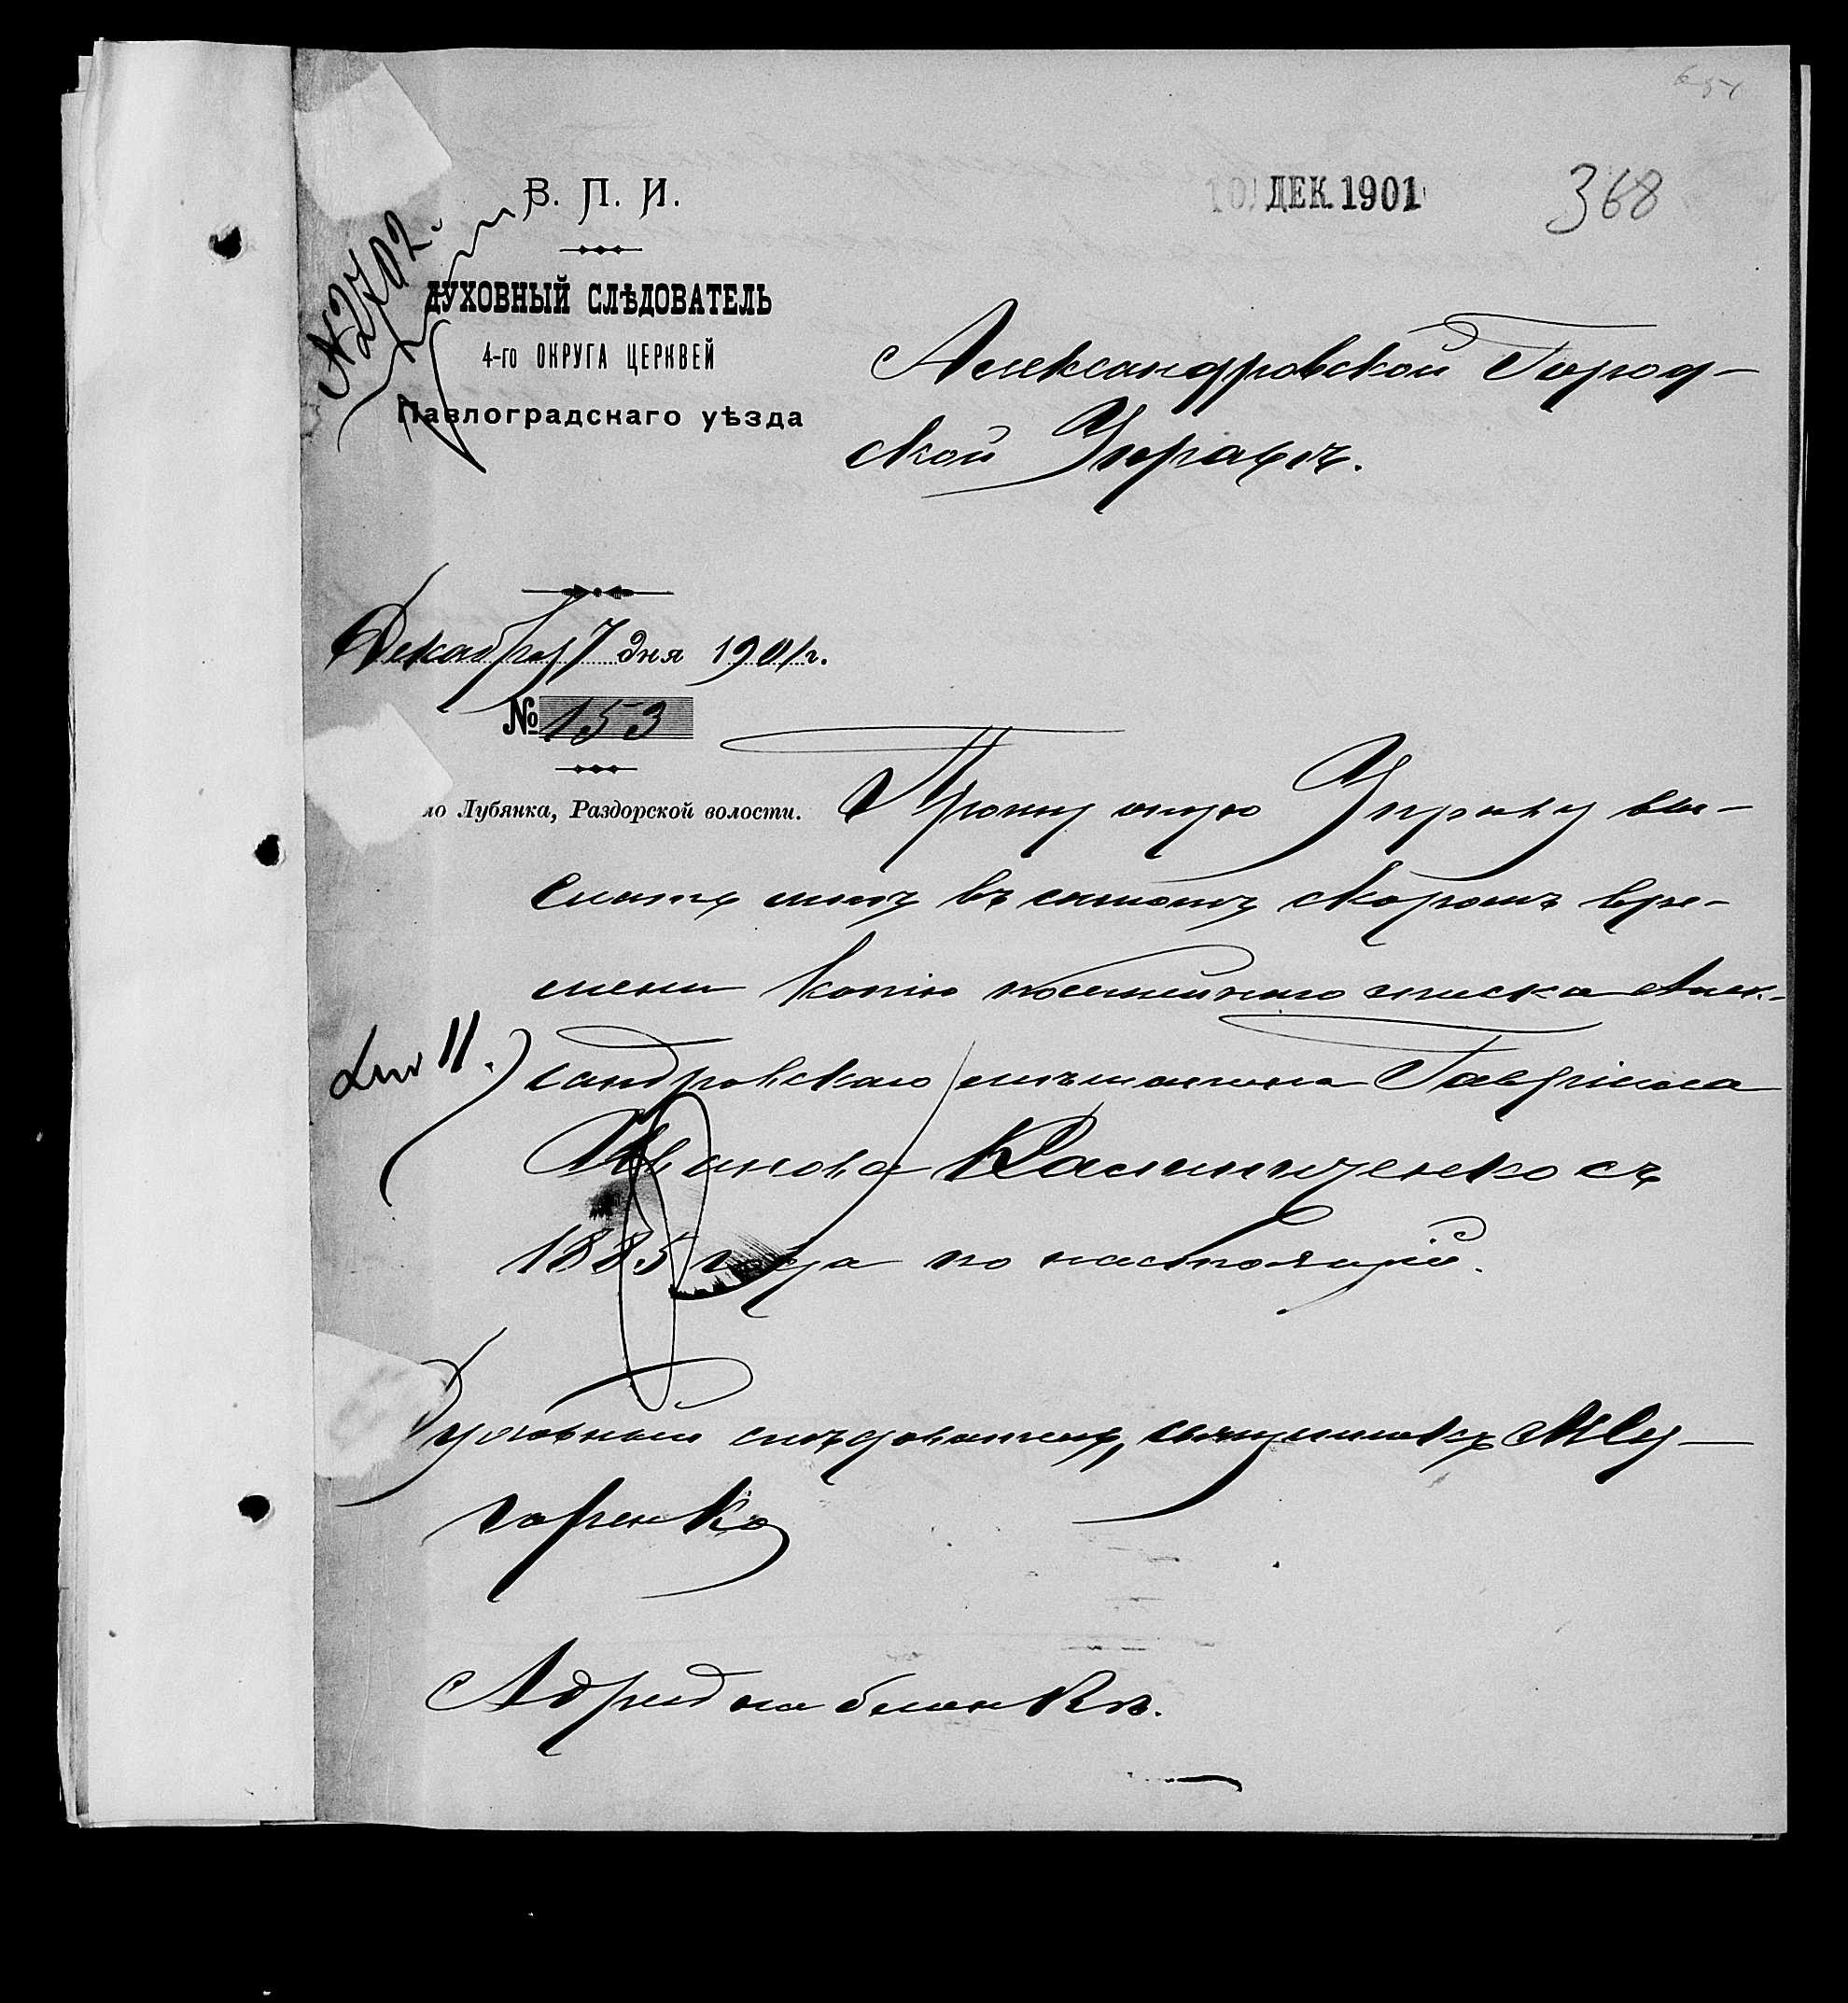 10 ДЕК. 1901
368
В. П. И.
№ 2702.
ДУХОВНЫЙ СЛѢДОВАТЕЛЬ
4-го ОКРУГА ЦЕРКВЕЙ
Павлоградскаго уѣзда
Александровской Город-
ской Управѣ.
Декабря 7 дня 1901 г.
№ 153
ло Лубянка, Раздорской волости.
Прошу оную Управу вы-
слать мнѣ въ самомъ скоромъ вре-
мени копію посемейнаго списка Алек-
сандровскаго мѣщанина Гавріила
Иванова Калиниченко съ
1885 года по настоящій.
Духовный слѣдователь, священникъ
Адресъ на бланкѣ.